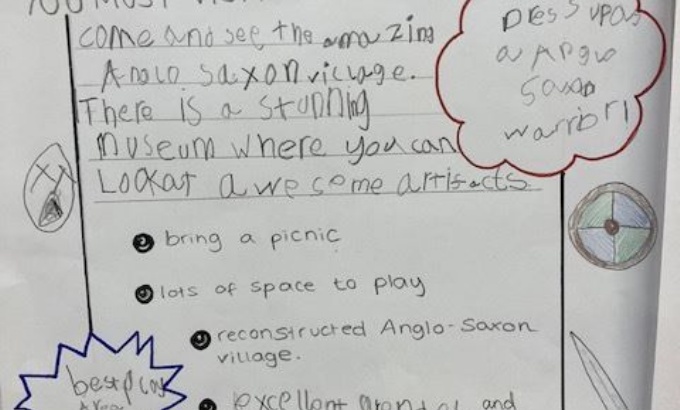 YOU MUST
come and see the amazing
Anglo Saxon village.
There is a stunning
museum where you can
Look at awesome artifacts
Dress up as
a Anglo
Saxon
warrior!
bring a picnic
lots of space to play
reconstructed Anglo-Saxon
village.
best play
excellent and